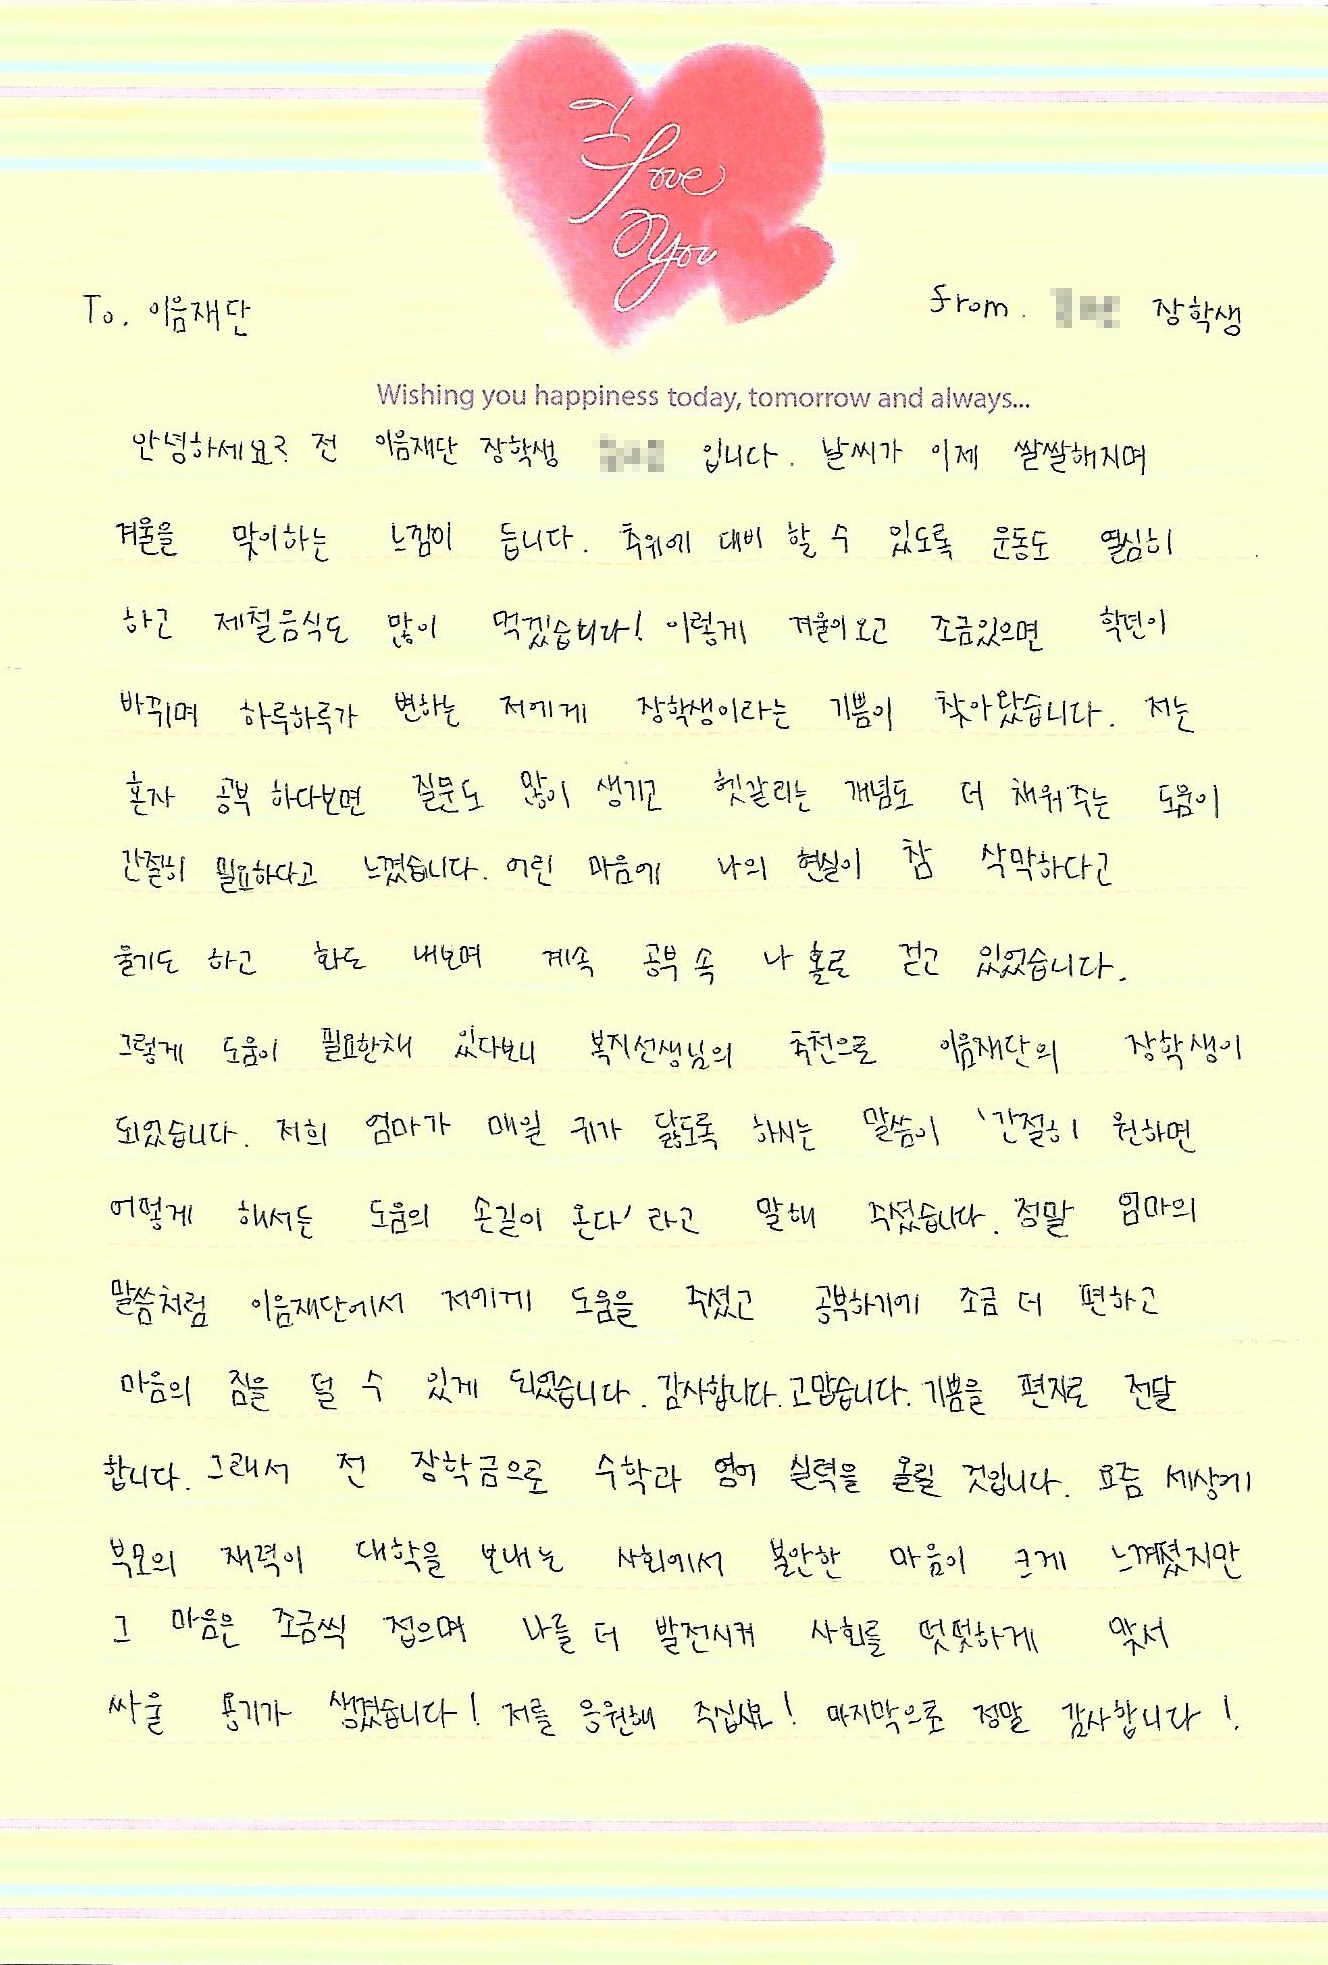 I
Love
You
To. 이음재단
from. 장학생
Wishing you happiness today, tomorrow and always...
안녕하세요? 전 이음재단 장학생 입니다. 날씨가 이제 쌀쌀해지며
겨울을 맞이하는 느낌이 듭니다. 추위에 대비 할 수 있도록 운동도 열심히
하고 제철음식도 많이 먹겠습니다! 이렇게 겨울이오고 조금있으면 학년이
바뀌며 하루하루가 변하는 저에게 장학생이라는 기쁨이 찾아왔습니다. 저는
혼자 공부 하다보면 질문도 많이 생기고 헷갈리는 개념도 더 채워주는 도움이
간절히 필요하다고 느꼈습니다. 어린 마음에 나의 현실이 참 삭막하다고
울기도 하고 화도 내보며 계속 공부 속 나 홀로 걷고 있었습니다.
그렇게 도움이 필요한채 있다보니 복지선생님의 추천으로 이음재단의 장학생이
되었습니다. 저희 엄마가 매일 귀가 닳도록 하시는 말씀이 '간절히 원하면
어떻게 해서든 도움의 손길이 온다' 라고 말해 주셨습니다. 정말 엄마의
말씀처럼 이음재단에서 저에게 도움을 주셨고 공부하기에 조금 더 편하고
마음의 짐을 덜 수 있게 되었습니다. 감사합니다. 고맙습니다. 기쁨을 편지로 전달
합니다. 그래서 전 장학금으로 수학과 영어 실력을 올릴 것입니다. 요즘 세상에
부모의 재력이 대학을 보내는 사회에서 불안한 마음이 크게 느껴졌지만
그 마음은 조금씩 접으며 나를 더 발전시켜 사회를 떳떳하게 맞서
싸울 용기가 생겼습니다! 저를 응원해 주십시요! 마지막으로 정말 감사합니다!.